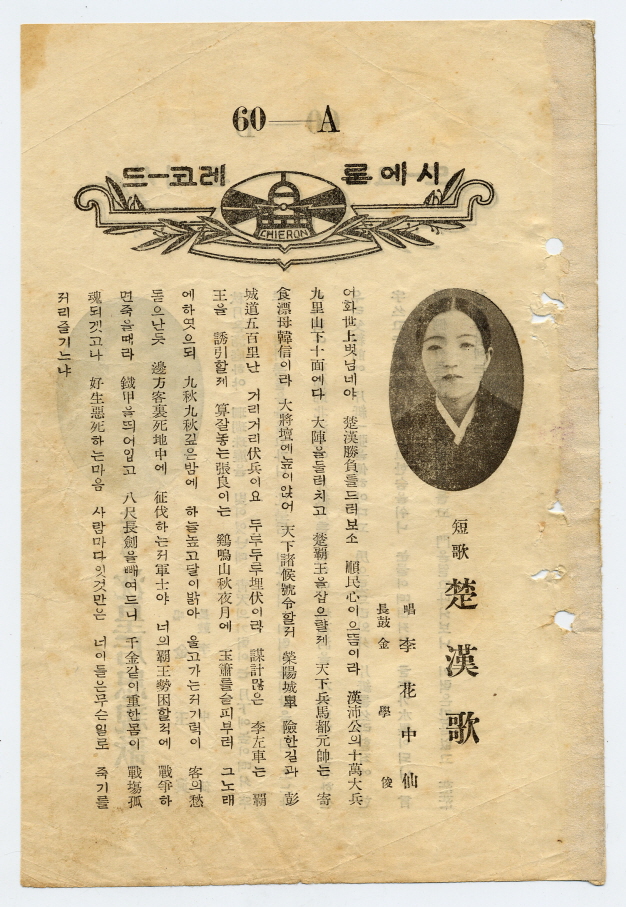 60—A
시에론 레코ー드
CHIERON
短歌 楚漢歌
唱 李花中仙
長鼓 金學俊
어화世上벗님네야 楚漢勝負를드러보소 順民心이으뜸이라 漢沛公의十萬大兵
九里山下十面에다 大陣을둘러치고 楚覇王을잡으랼제 天下兵馬都元帥는 寄
食漂母韓信이라 大將壇에높이앉어 天下諸候號令할저 滎陽城臯 險한길과 彭
城道五百里난 거리거리伏兵이요 두루두루埋伏이라 謀計많은 李左車는 覇
王을 誘引할제 算잘놓는張良이는 鷄鳴山秋夜月에 玉簫를슬피부러 그노래
에하엿으되 九秋九秋깊은밤에 하늘높고달이밝아 울고가는저기럭이 客의愁
돋으난듯 邊方客裏死地中에 征伐하는저軍士야 너의覇王勢困할적에 戰爭하
면죽을때라 鐵甲을띄어입고 八尺長劍을빼여드니 千金같이重한몸이 戰塲孤
魂되겟고나 好生惡死하는마음 사람마다잇것만은 너이들은무슨일로 죽기를
저리즐기느냐